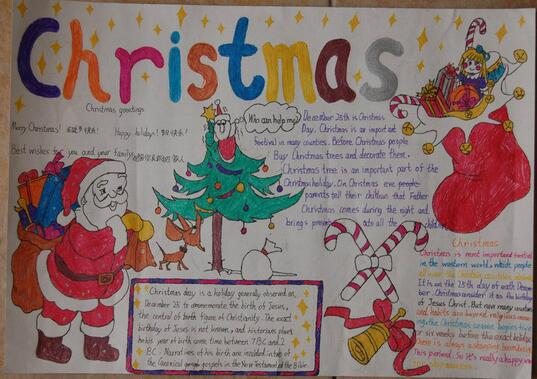 Christmas
Christmas greetings
Merry Christmas!
Happy holidays!
Best wishes for you and your family
Who can help me?
December 25th is Christmas
Day. Christmas is an important
festival in many countries. Before Christmas people
Buy Christmas trees and decorate them.
Christmas tree is an important part of the
Christmas holiday. On Christmas eve people
parents tell their children that Father
Christmas comes during the night and
brings presents all the
Christmas day is a holiday generally observed on
December 25 to commemorate the birth of Jesus,
the central of birth figure of Christianity. The exact
birthday of Jesus is not known, and historians place
his year of birth some time between 7BC and 2
BC. Narratives of his birth are included in two of
the Canonical gospels in the New Testament of the Bible.
Christmas
Christmas is most important festival
in the western world, which people
all over the
It is on the 25th day of each Decem
ber. Christians consider it as the birthday
of Jesus Christ. But now many countries
and habits are beyond religious
the Christmas season begins five
or six weeks before the exact holiday
There is always a shopping boom during
This period. So it's really a happy